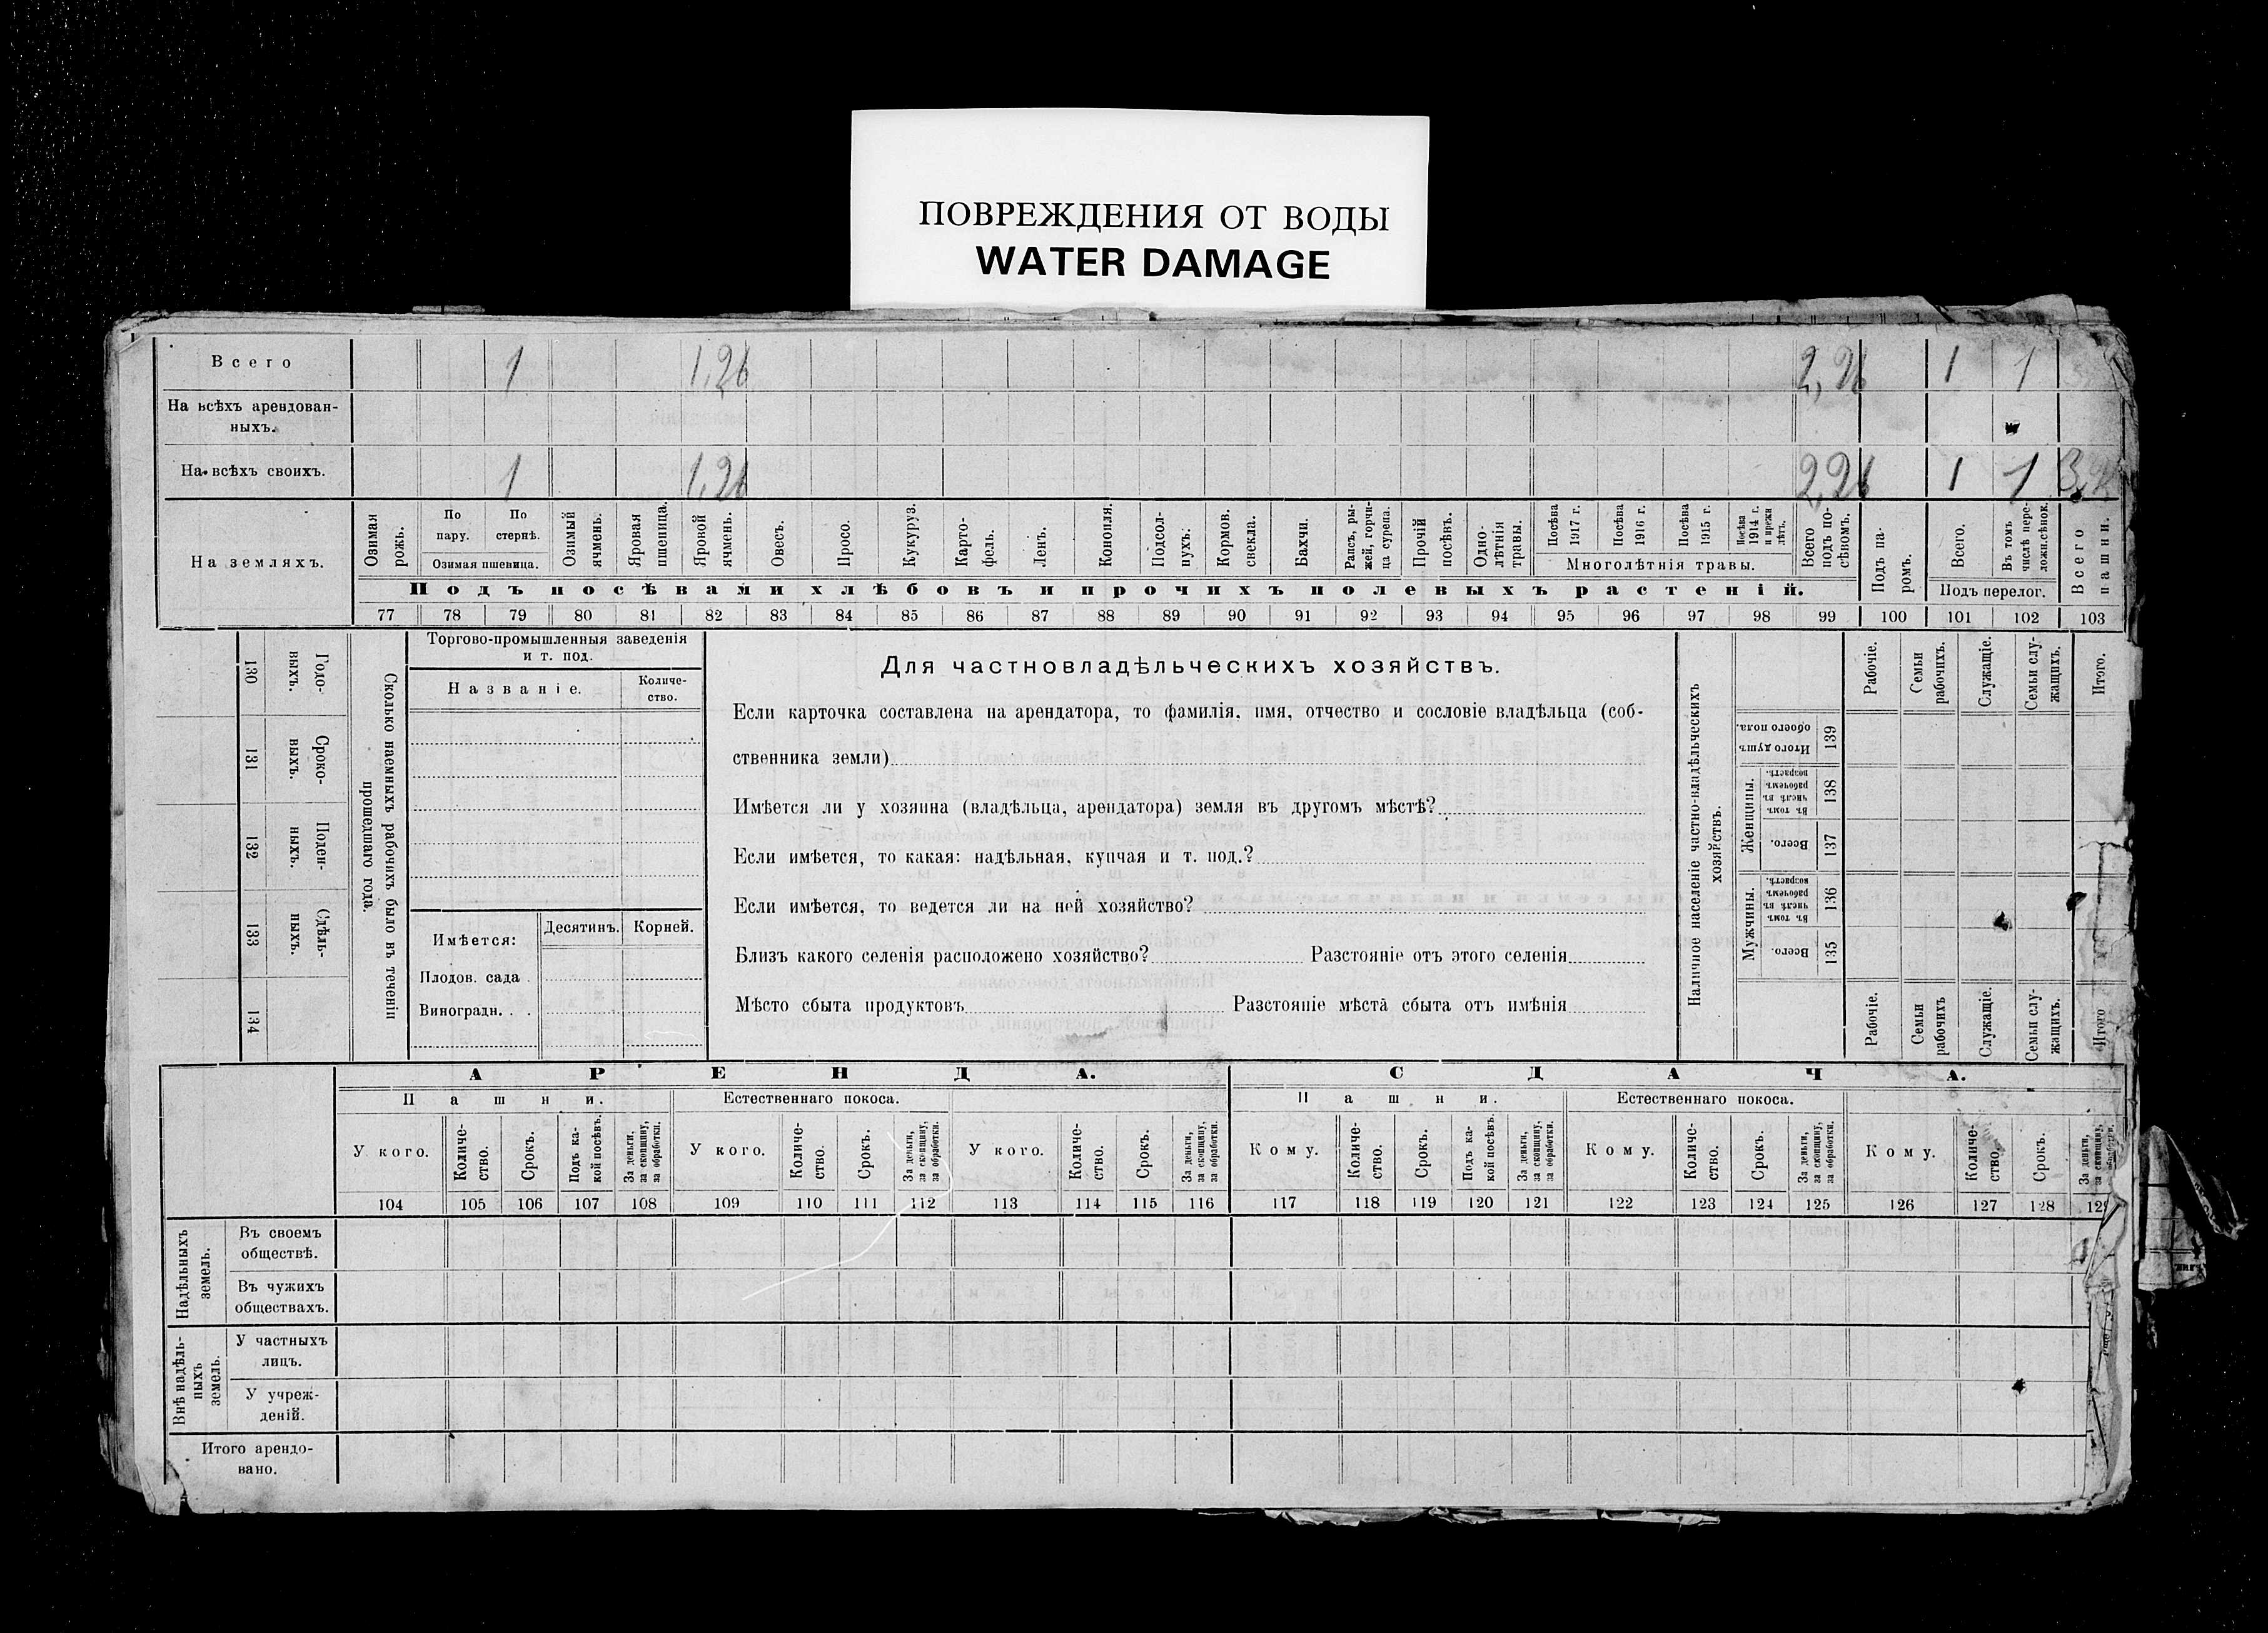 ПОВРЕЖДЕНИЯ ОТ ВОДЫ
WATER DAMAGE
Всего 1 1,26 2,26 1 1
На всѣхъ арендован-
ныхъ.
На всѣхъ своихъ. 1 1,26 2,26 1 1
На земляхъ.
Озимая рожь.
По пару.
По стернѣ.
Озимая пшеница.
Озимый ячмень.
Яровая пшсница.
Яровой ячмень.
Овесъ.
Просо.
Кукуруз.
Карто-
фель.
Ленъ.
Конопля.
Подсол-
нухъ.
Кормов. свекла.
Бахчи.
Рапсъ, ры-
жей, горчи-
ца сурепа.
Прочій посѣвъ.
Одно-
лѣтнія травы.
Посѣва 1917 г.
Посѣва 1916 г.
Посѣва 1915 г.
Посѣва 1914 г. и прежн лѣтъ.
Многолѣтнія травы.
Всего подъ по-
сѣвомъ.
Подъ па-
ромъ.
Всего.
Въ томъ числѣ пере-
ложн.сѣнок.
Подъ перелог.
Всего пашни.
Подъ посѣвами хлѣбовъ и прочихъ полевыхъ растеній.
77 78 79 80 81 82 83 84 85 86 87 88 89 90 91 92 93 94 95 96 97 98 99 100 101 102 103
130 Годо-
выхъ.
131 Сроко-
выхъ.
132 Поден-
ныхъ.
133 Сдѣль-
ныхъ.
134
Сколько наемныхъ рабочихъ было въ теченіи
прошедшаго года.
Торгово-промышленныя заведенія
и т. под.
Названіе.
Количе-
ство.
Имѣется:
Десятинъ.
Корней.
Плодов. сада .
Виноградн. . .
Для частновладѣльческихъ хозяйствъ.
Если карточка составлена на арендатора, то фамилія, имя, отчество и сословіе владѣльца (соб-
ственника земли)
Имѣется ли у хозяина (владѣльца, арендатора) земля въ другомъ мѣстѣ?
Если имѣется, то какая: надѣльная, купчая и т. под.?
Если имѣется, то ведется ли на ней хозяйство?
Близъ какого селенія расположено хозяйство? Разстояніе отъ этого селенія
Мѣсто сбыта продуктовъ Разстояніе мѣста сбыта отъ имѣнія
Наличное населеніе частно-владѣльческихъ
хозяйствъ.
Рабочіе.
Семьи рабочихъ.
Служащіе.
Семьи слу-
жащихъ.
Итого.
Итого душъ обоего пола. 139
Женщины.
Въ томъ числѣ въ рабочемъ возрастѣ. 138
Всего. 137
Мужчины.
Въ томъ числѣ въ рабочемъ возрастѣ. 136
Всего. 135
Рабочіе.
Семьи рабочихъ
Служащіе.
Семьи слу-
жащихъ.
Итого
АРЕНДА. СДАЧА.
Пашни. Естественнаго покоса. Пашни. Естественнаго покоса.
У кого.
Количе-
ство.
Срокъ.
Подъ ка-
кой посѣвъ.
За деньги, за скопщину, за обработки.
У кого.
Количе-
ство.
Срокъ.
За деньги, за скопщину, за обработки.
У кого.
Количе-
ство.
Срокъ.
За деньги, за скопщину, за обработки.
Кому.
Количе-
ство.
Срокъ.
Подъ ка-
кой посѣвъ.
За деньги, за скопщину, за обработки.
Кому.
Количе-
ство.
Срокъ.
За деньги, за скопщину, за обработки.
Кому.
Количе-
ство.
Срокъ.
За деньги, за скопщину,
104 105 106 107 108 109 110 111 112 113 114 115 116 117 118 119 120 121 122 123 124 125 126 127 128 129
Надѣльныхъ земель.
Въ своемъ
обществѣ.
Въ чужихъ
обществахъ.
Внѣ надѣль-
ныхъ земель.
У частныхъ
лицъ.
У учреж-
деній.
Итого арендо-
вано.